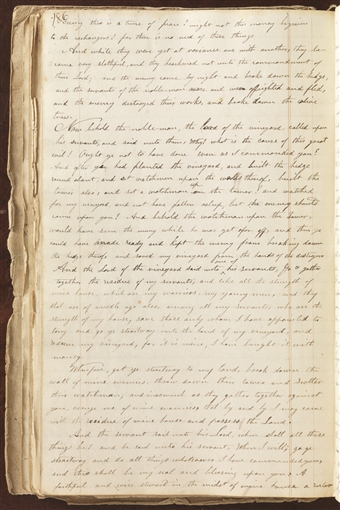 186
Seeing this is a time of peace? might not this money be given
to the exchangers? for there is no need of these things
And while they were yet at variance one with another they be-
came very slothful, and they hearkened not unto the commandments of
their lord; and the enemy came by night and broke down the hedge,
and the servants of the nobleman arose and were affrighted and fled,
and the enemy destroyed their works, and broke down the olive
trees.
Now behold the noble-man, the Lord of the vineyard, called upon
his servants, and said unto them; Why! what is the cause of this great
evil? Ought ye not to have done even as I commanded you?
And after you had planted the vineyard, and built the hedge
round about, and set watchmen upon the walls thereof, built the
tower also, and set a watchman upon the tower? and watched
for my vineyard and not have fallen asleep, lest the enemy should
come upon you? And behold the watchman upon the tower,
would have seen the enemy while he was yet afar off, and then ye
could have made ready and kept the enemy from breaking down
the hedge thereof, and saved my vineyard from the hands of the destroyer
And the Lord of the vineyard said unto one of his servants, Go & gather
together the residue of my servants, and take all the strength of
mine house, which are my warriors, my young men, and they
that are of middle age also, among all my servants, who are the
strength of my house, save those only whom I have appointed to
tarry and go ye straitway unto the land of my vineyard, and
redeem my vineyard, for it is mine, I have bought it with
money.
Wherefore, get ye straitway to my land, break down the
wall of mine enemies, throw down their tower and scatter
their watchmen, and inasmuch as they gather together against
you, avenge me of mine enemies that by and by I may come
with the residue of mine house and possess the Land.
And the servant said unto his Lord, when shall all these
things be? and he said unto his servant, When I will, go ye
straitway and do all things whatsoever I have commanded you
and this shall be my seal and blessing upon you. A
faithful and wise steward in the midst of mine house a ruler